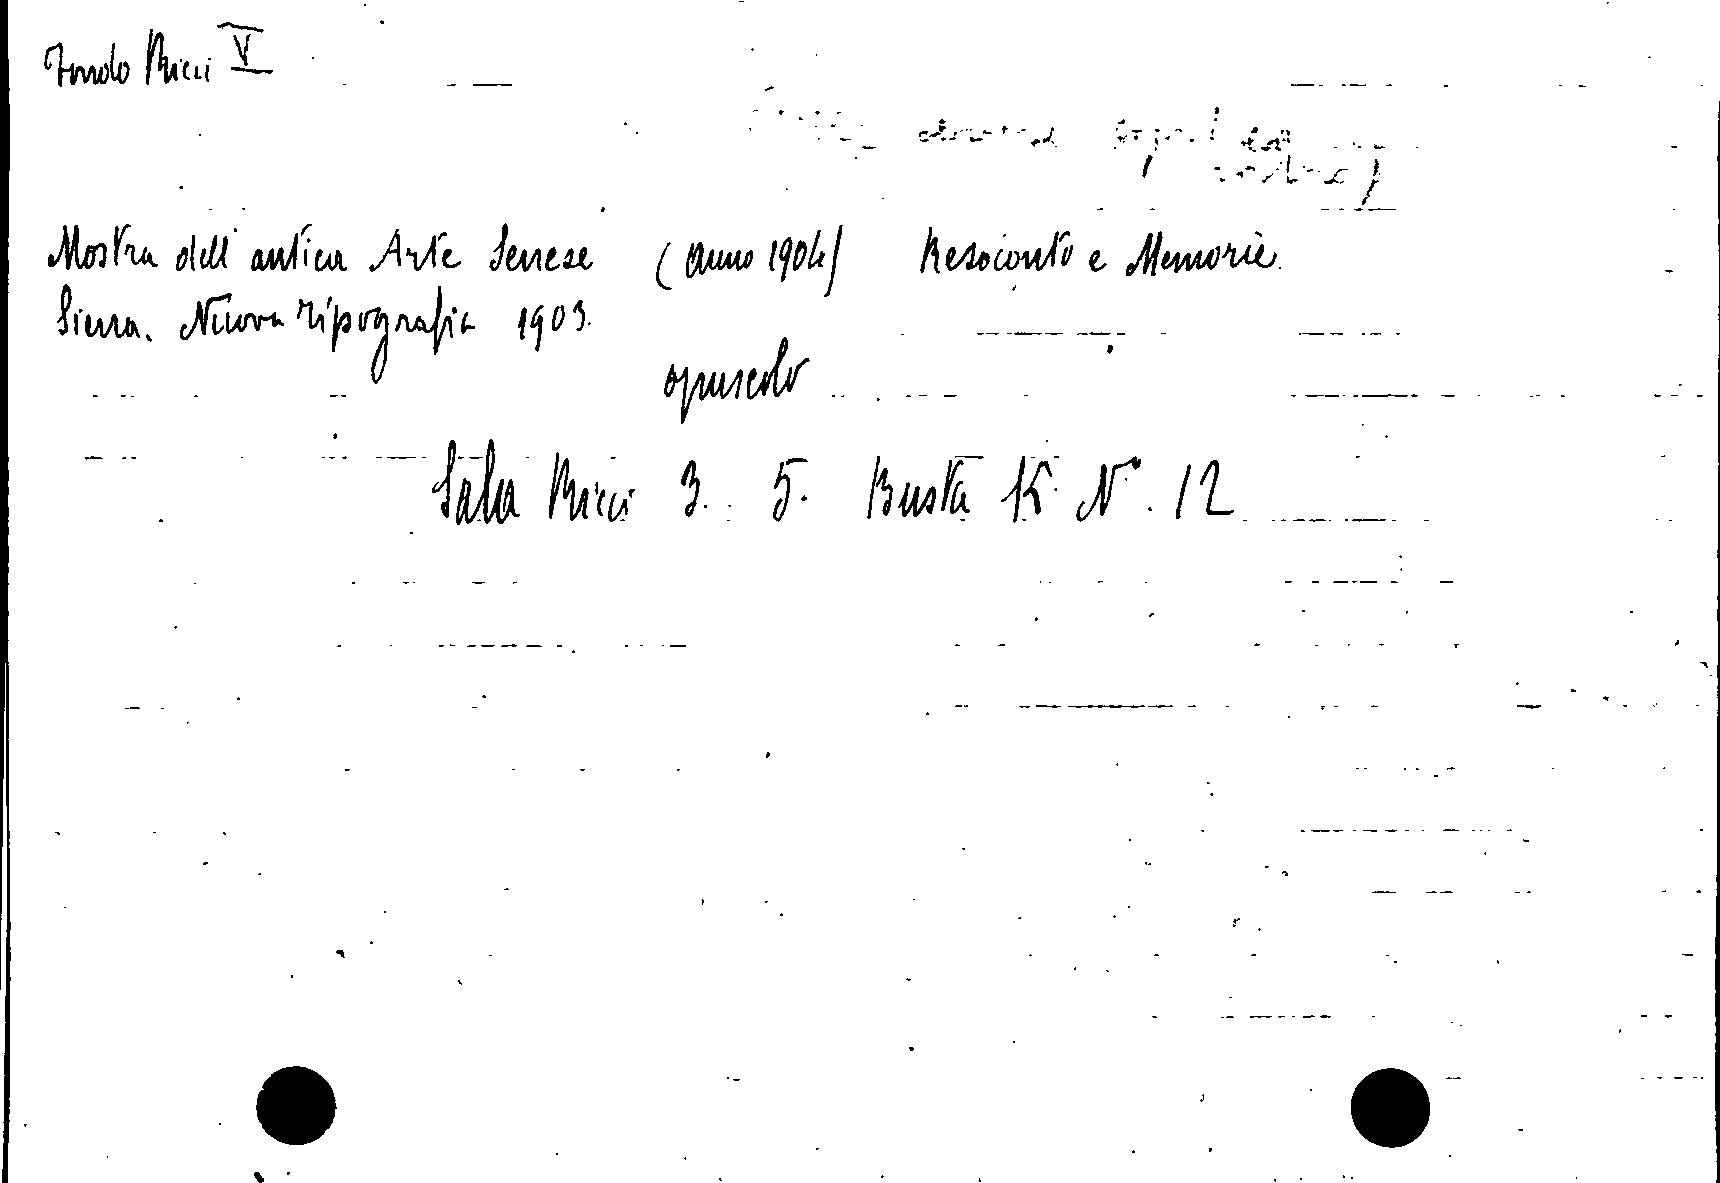 Fondo Ricci V
Mostra dell'antica Arte Senese (Anno 1904) Resoconto e Memorie.
Siena. Nuova Tipografia 1903.
opuscolo
Sala Ricci 3. 5. Busta K N° 12